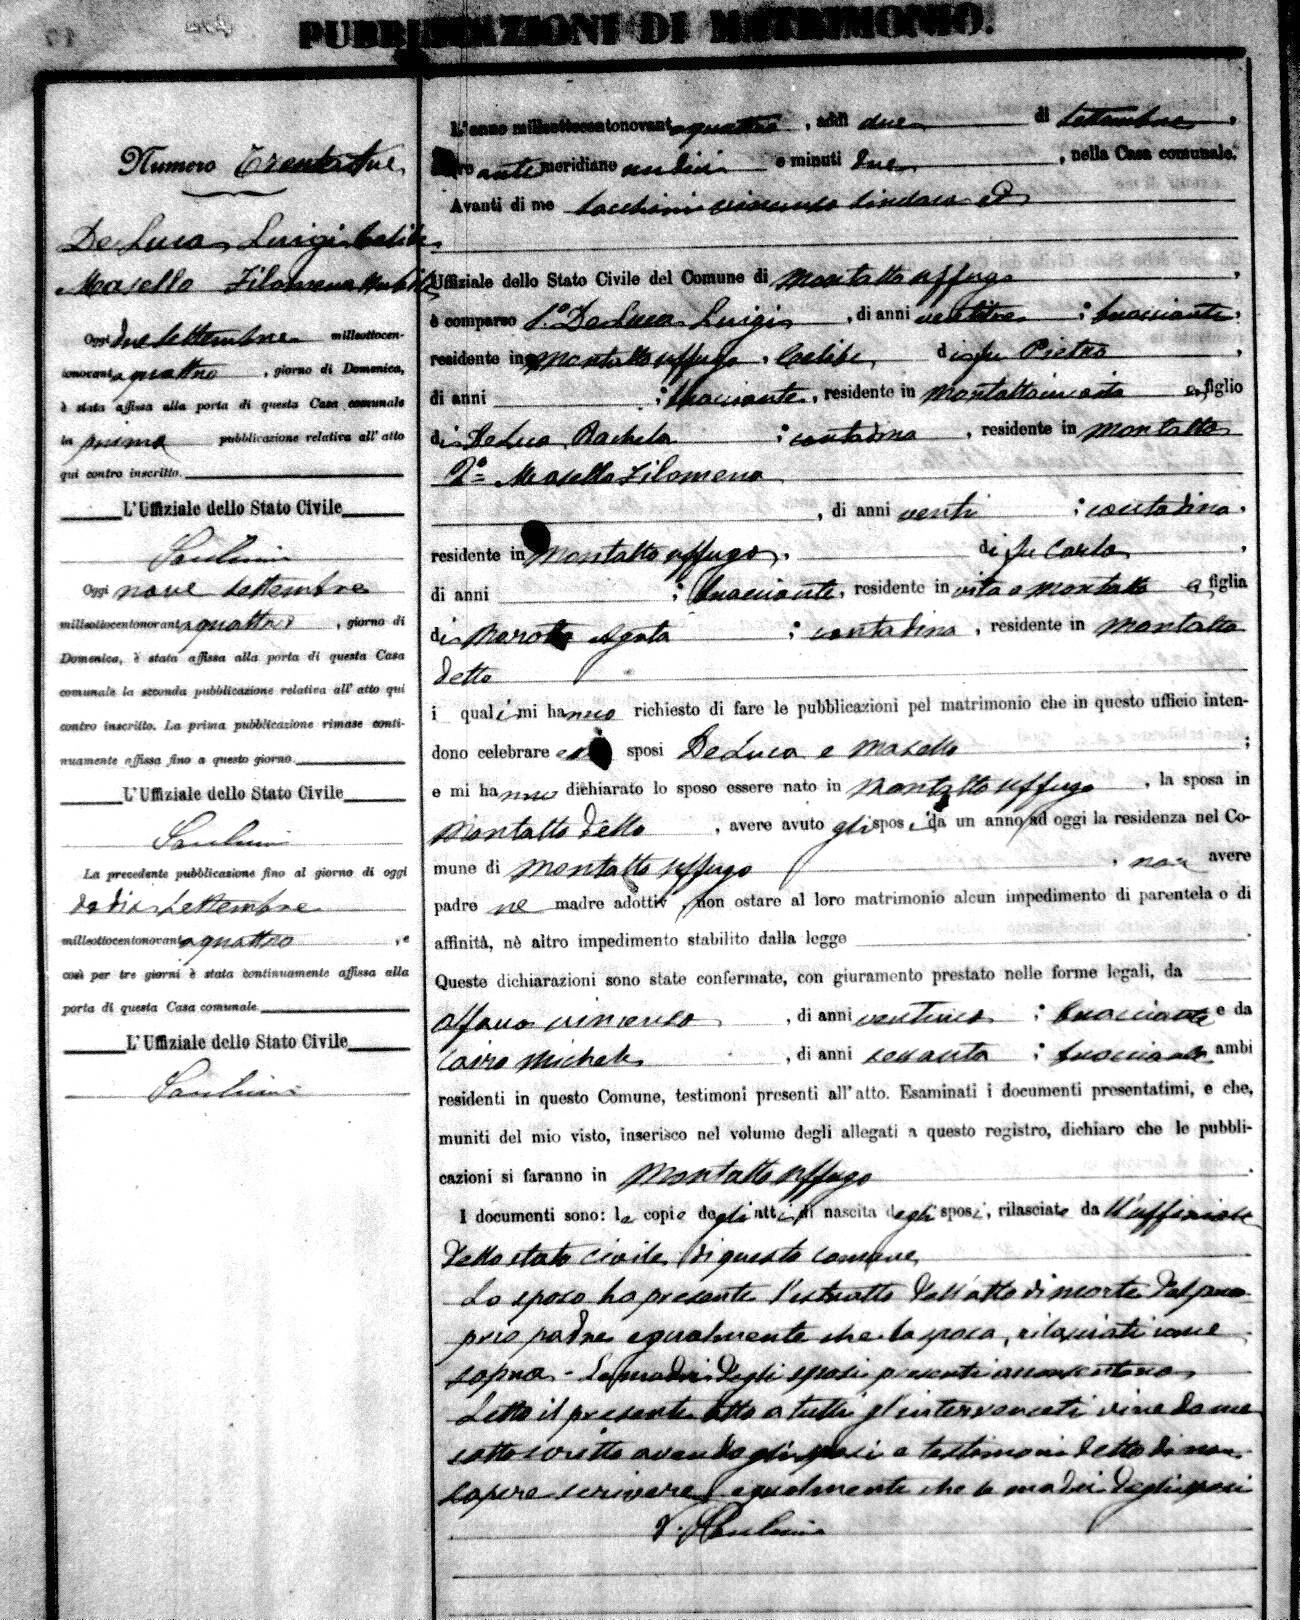 PUBBLICAZIONI DI MATRIMONIO.
Numero Trentadue
De Luca Luigi celibe
Masello Filomena nubile
Oggi due settembre millsottocen-
tonovanta quattro, giorno di Domenica,
è stata affissa alla porta di questa Casa comunale
la prima pubblicazione relativa all' atto
qui contro inscritto.
L'Uffiziale dello Stato Civile
Oggi nove settembre
millsottocentonovanta quattro, giorno di
Domenica, è stata affissa alla porta di questa Casa
comunale la seconda pubblicazione relativa all' atto qui
contro inscritto. La prima pubblicazione rimase conti-
nuamente affissa fino a questo giorno.
L'Uffiziale dello Stato Civile
La precedente pubblicazione fino al giorno di oggi
dodici settembre
millsottocentonovanta quattro, e
così per tre giorni è stata continuamente affissa alla
porta di questa Casa comunale
L'Uffiziale dello Stato Civile
L'anno millsottocentonovanta quattro, addì due di settembre,
ore antemeridiane undici e minuti due, nella Casa comunale.
Avanti di me Vincenzo Sindaco ed
Uffiziale dello Stato Civile del Comune di Montalto Uffugo,
è comparso 1.º De Luca Luigi, di anni ventitre; bracciante,
residente in Montalto Uffugo, celibe, di fu Pietro,
di anni ; bracciante, residente in Montalto in vita e figlio
di De Luca Rachela ; contadina, residente in Montalto
2º = Masello Filomena
, di anni venti ; contadina,
residente in Montalto Uffugo, di fu Carlo,
di anni ; bracciante, residente in vita a Montalto e figlia
di Agata ; contadina, residente in Montalto
detto
i quali mi hanno richiesto di fare le pubblicazioni pel matrimonio che in questo ufficio inten-
dono celebrare essi sposi De Luca e Masello ;
e mi hanno dichiarato lo sposo essere nato in Montalto Uffugo, la sposa in
Montalto detto, avere avuto gli sposi da un anno ad oggi la residenza nel Co-
mune di Montalto Uffugo, non avere
padre ne madre adottivi, non ostare al loro matrimonio alcun impedimento di parentela o di
affinità, nè altro impedimento stabilito dalla legge
Queste dichiarazioni sono state confermate, con giuramento prestato nelle forme legali, da
Alfano Vincenzo, di anni ; bracciante e da
Cairo Michele, di anni sessanta ; bracciante ambi
residenti in questo Comune, testimoni presenti all'atto. Esaminati i documenti presentatimi, e che,
muniti del mio visto, inserisco nel volume degli allegati a questo registro, dichiaro che le pubbli-
cazioni si faranno in Montalto Uffugo
I documenti sono: le copie degli atti di nascita degli sposi, rilasciate dall'uffiziale
dello stato civile di questo comune
Lo sposo ha presente l'estratto dell'atto di morte del pro-
prio padre egualmente che la sposa, rilasciati come
sopra - Le madri degli sposi presenti acconsentono
Letto il presente atto a tutti gl'intervenuti viene da me
sottoscritto avendo gli sposi e testimoni detto di non
sapere scrivere egualmente che le madri degli sposi